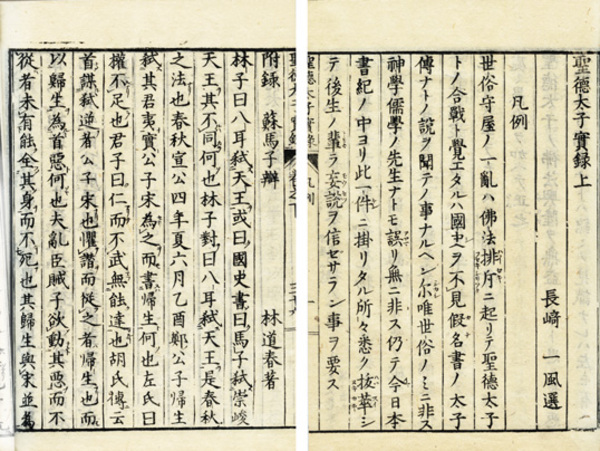 聖德太子實録上
長﨑 一風選
凡例
世俗守屋ノ一亂ハ佛法排斥ニ起リテ聖德太子
トノ合戰ト覺エタルハ國史ヲ不見假名書ノ太子
傳ナトノ說ヲ聞テノ事ナルヘシ尓唯世俗ノミニ非ス
神學儒學ノ先生ナトモ誤リ無ニ非ス仍テ今日本
書紀ノ中ヨリ此一件ニ掛リタル所々悉ク拔萃シ
テ後生ノ輩ラ妄說ヲ信セサラン事ヲ要ス
附録 蘇馬子辯
林道春著
林子曰八耳弑天王或曰國史書曰馬子弑崇峻
天王其不同何也林子對曰八耳弑天王是春秋
之法也春秋宣公四年夏六月乙酉鄭公子歸生
弑其君夷實公子宋為之而書歸生何也左氏曰
權不足也君子曰仁而不武無能達也胡氏傳云
首謀弑逆者公子宋也懼譖而從之者歸生也而
以歸生為首惡何也夫亂臣賊子欲動其惡而不
從者未有能全其身而不死也其歸生與宋並為